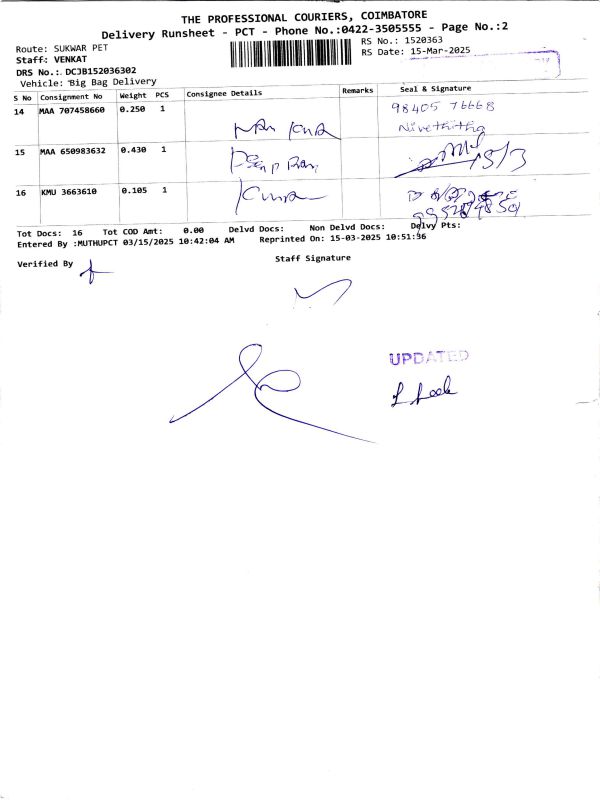 THE PROFESSIONAL COURIERS, COIMBATORE
Delivery Runsheet - PCT - Phone No.:0422-3505555 - Page No.:2
Route: SUKWAR PET
RS No.: 1520363
Staff: VENKAT
RS Date: 15-Mar-2025
DRS No.: DCJB152036302
Vehicle: Big Bag Delivery
S No Consignment No Weight PCS Consignee Details Remarks Seal & Signature
14 MAA 707458660 0.250 1 98405 76668
Nivethitha
15 MAA 650983632 0.430 1 15/3
16 KMU 3663610 0.105 1 Kumar
Tot Docs: 16 Tot COD Amt: 0.00 Delvd Docs: Non Delvd Docs: Delvy Pts:
Entered By :MUTHUPCT 03/15/2025 10:42:04 AM Reprinted On: 15-03-2025 10:51:36
Verified By
Staff Signature
UPDATED